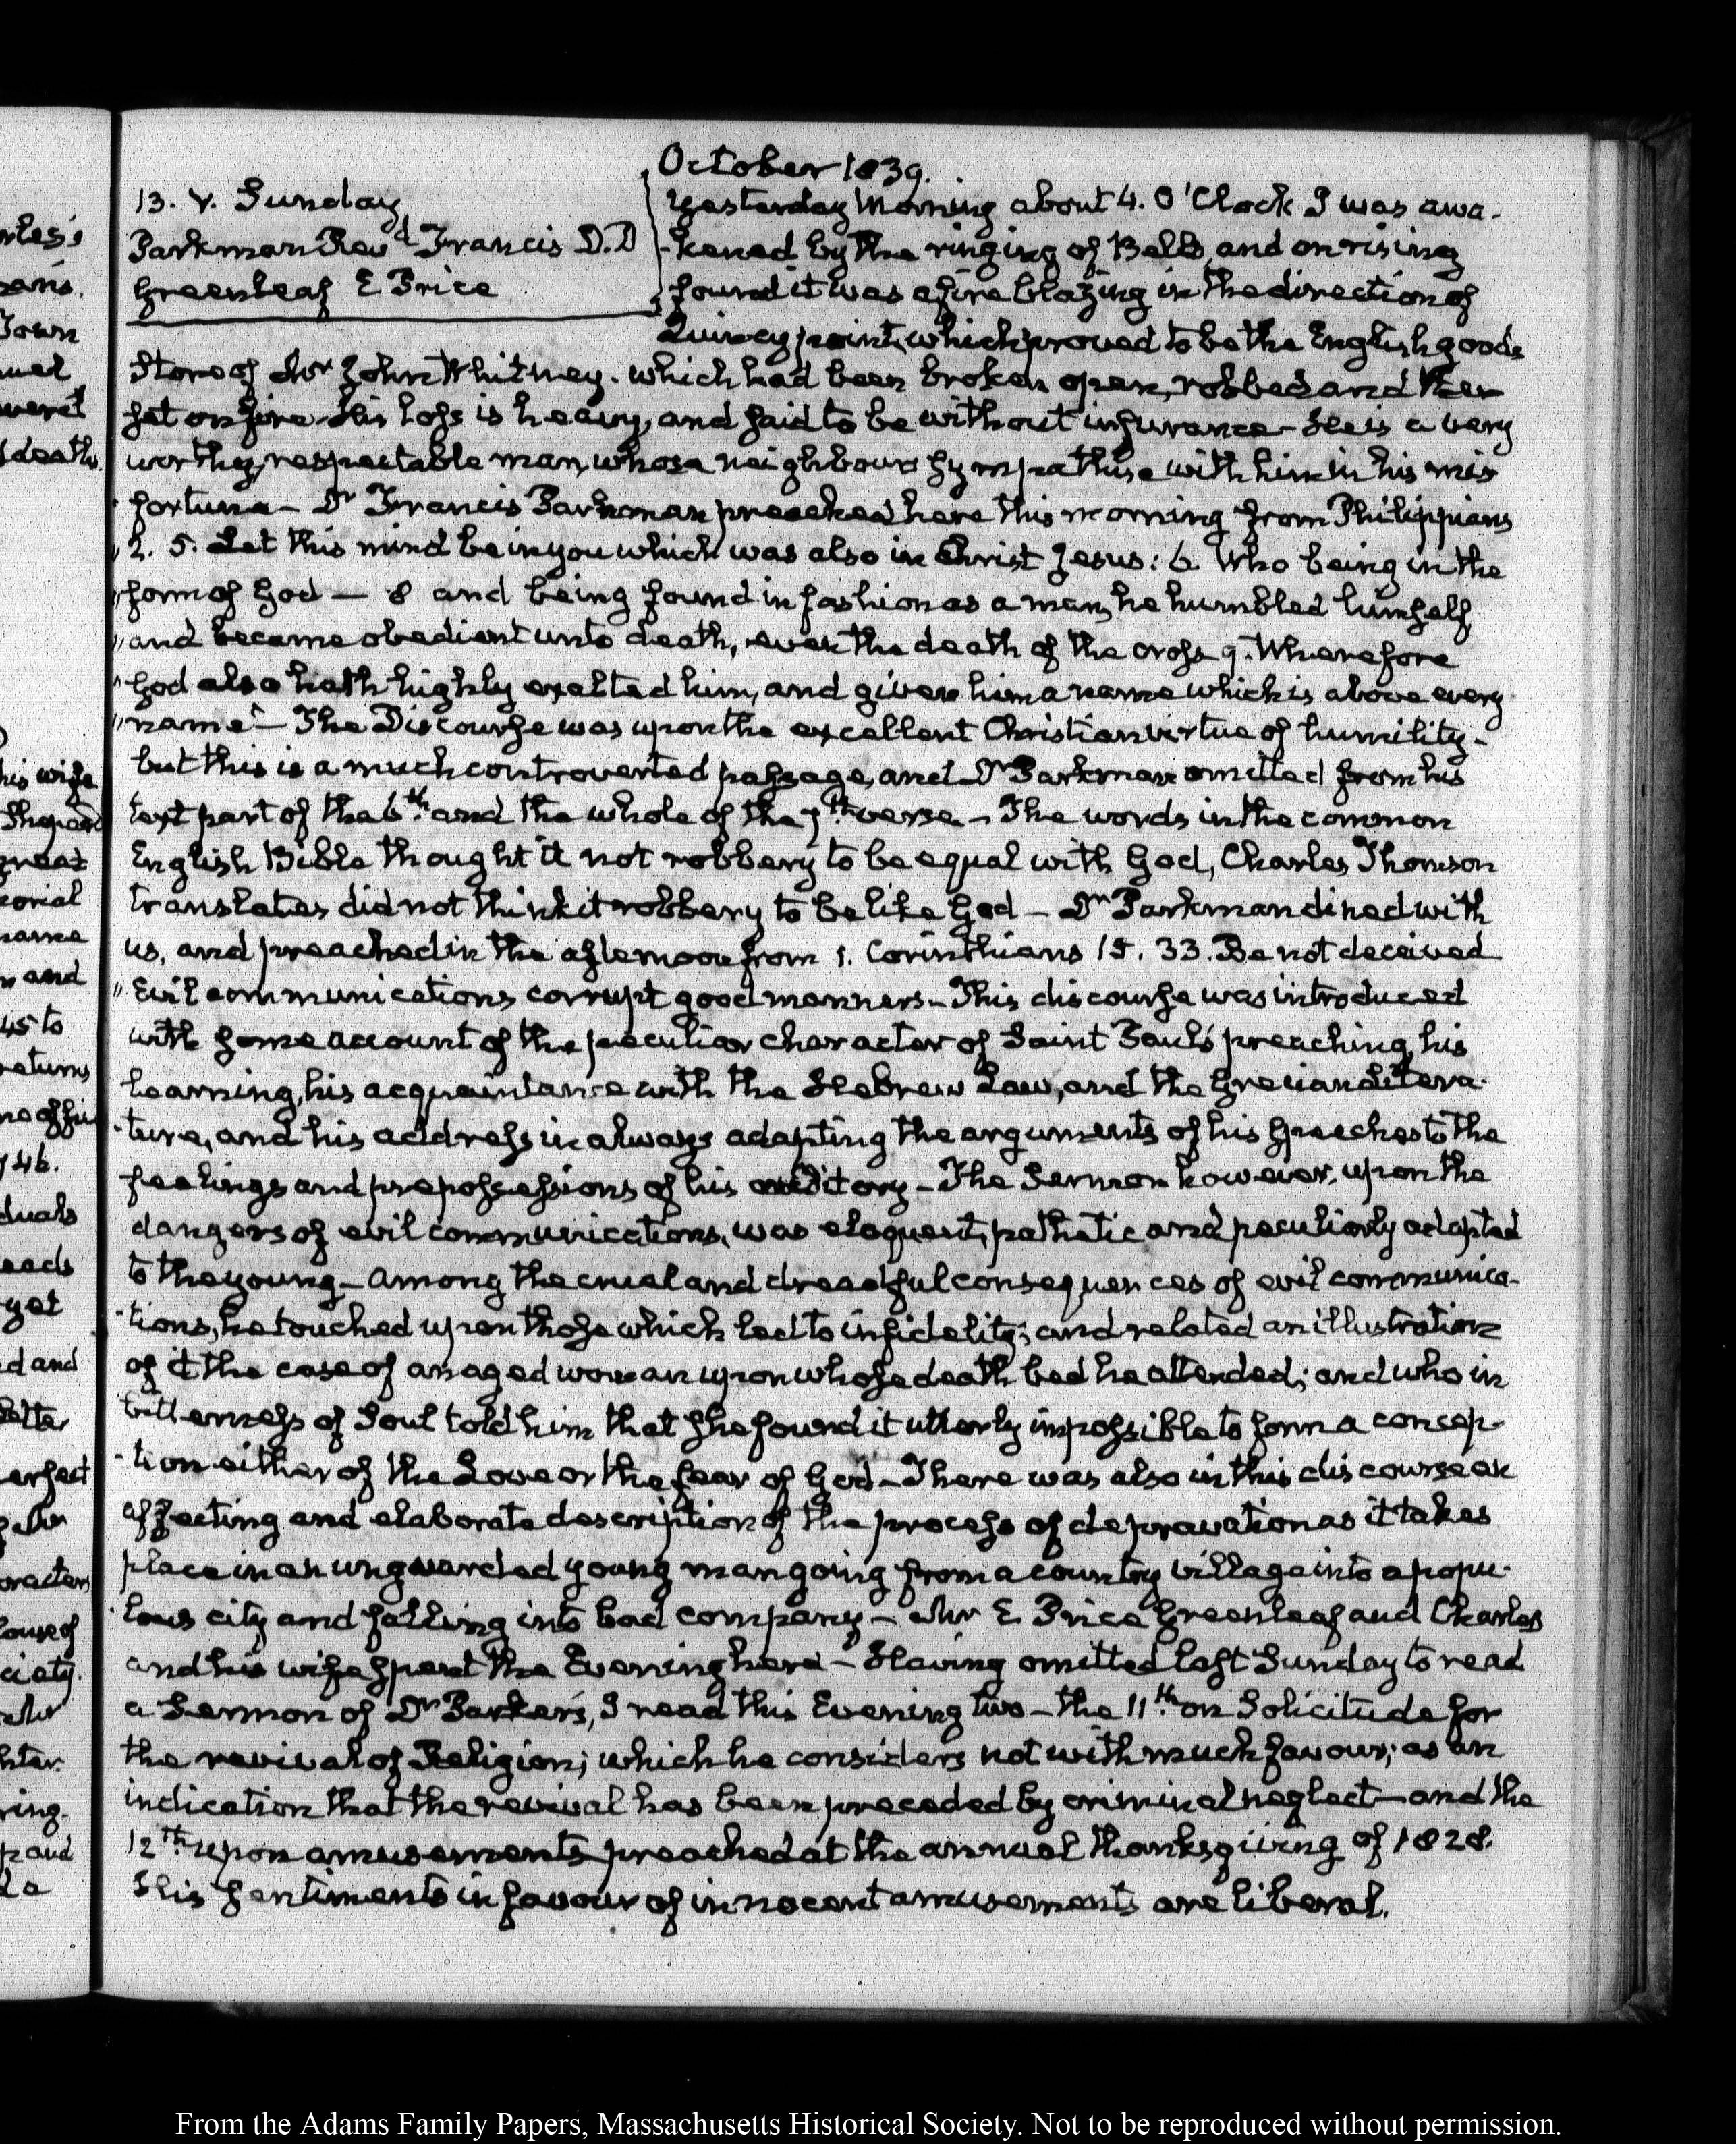 October 1839.
13. V. Sunday
Parkman Revd. Francis D.D
Greenleaf E Price
Yesterday Morning about 4. O'Clock I was awa-
-kened by the ringing of Bells, and on rising
found it was a fire blazing in the direction of
Quincy point, which proved to be the English goods
Store of Mr John Whitney. which had been broken open, robbed and then
set on fire. His loss is heavy, and said to be without insurance - He is a very
worthy, respectable man, whose neighbours sympathise with him in his mis
fortune - Dr Francis Parkman preached here this morning from Philippians
2. 5. Let this mind be in you which was also in Christ Jesus: 6. Who being in the
"form of God — 8 and being found in fashion as a man, he humbled himself,
"and became obedient unto death, even the death of the cross 9. Wherefore
"God also hath highly exalted him, and given him a name which is above every
"name" - The Discourse was upon the excellent Christian virtue of humility -
but this is a much controverted passage, and Dr Parkman omitted from his
text part of the 6th. and the whole of the 7th verse - The words in the common
English Bible thought it not robbery to be equal with God, Charles Thomson
translates did not think it robbery to be like God - Dr Parkman dined with
us, and preached in the afternoon from 1. Corinthians 15. 33. Be not deceived
"Evil communications corrupt good manners - This discourse was introduced
with some account of the peculiar character of Saint Paul's preaching, his
learning, his acquaintance with the Hebrew Law, and the Grecian Litera-
-ture, and his address in always adapting the arguments of his speeches to the
feelings and prepossessions of his auditory - The Sermon however, upon the
dangers of evil communications, was eloquent, pathetic and peculiarly adapted
to the young - Among the cruel and dreadful consequences of evil communica-
-tions, he touched upon those which led to infidelity; and related an illustration
of it the case of an aged woman upon whose death bed he attended; and who in
bitterness of Soul told him that she found it utterly impossible to form a concep-
-tion either of the Love or the fear of God - There was also in this discourse an
affecting and elaborate description of the process of depravation as it takes
place in an unguarded young man going from a country village into a popu-
-lous city and falling into bad company - Mr E. Price Greenleaf and Charles
and his wife spent the Evening here - Having omitted last Sunday to read
a Sermon of Dr Parker's, I read this Evening two - the 11th. on Solicitude for
the revival of Religion; which he considers not with much favour; as an
indication that the revival has been preceded by criminal neglect - and the
12th. upon amusements preached at the annual thanksgiving of 1828.
His sentiments in favour of innocent amusements are liberal.
From the Adams Family Papers, Massachusetts Historical Society. Not to be reproduced without permission.